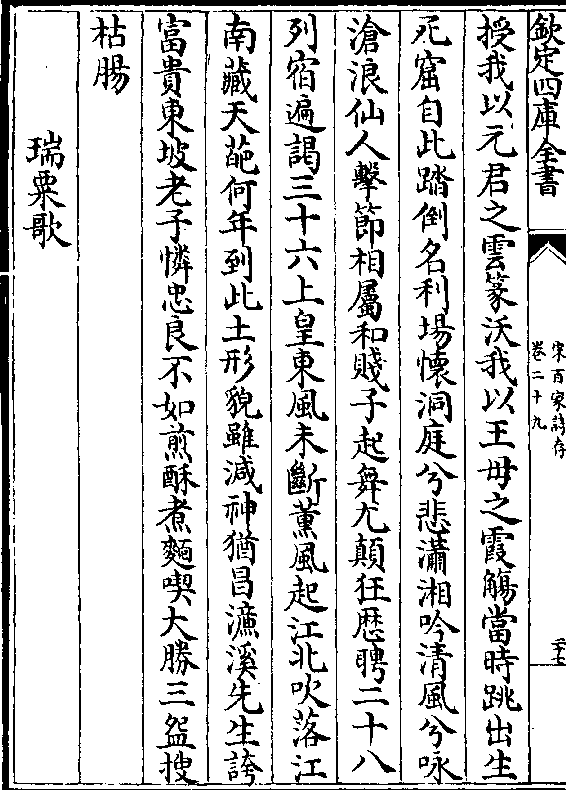 欽定四庫全書
宋百家詩存
卷二十九
二十七
授我以元君之雲篆沃我以王母之霞觴當時跳出生
死窟自此踏倒名利場懷洞庭兮悲瀟湘吟清風兮咏
滄浪仙人擊節相屬和賤子起舞尤顛狂歴聘二十八
列宿遍謁三十六上皇東風未斷薰風起江北吹落江
南藏天葩何年到此土形貌雖減神猶昌濂溪先生誇
富貴東坡老子憐忠良不如煎酥煮麵喫大勝三盌搜
枯腸
瑞粟歌